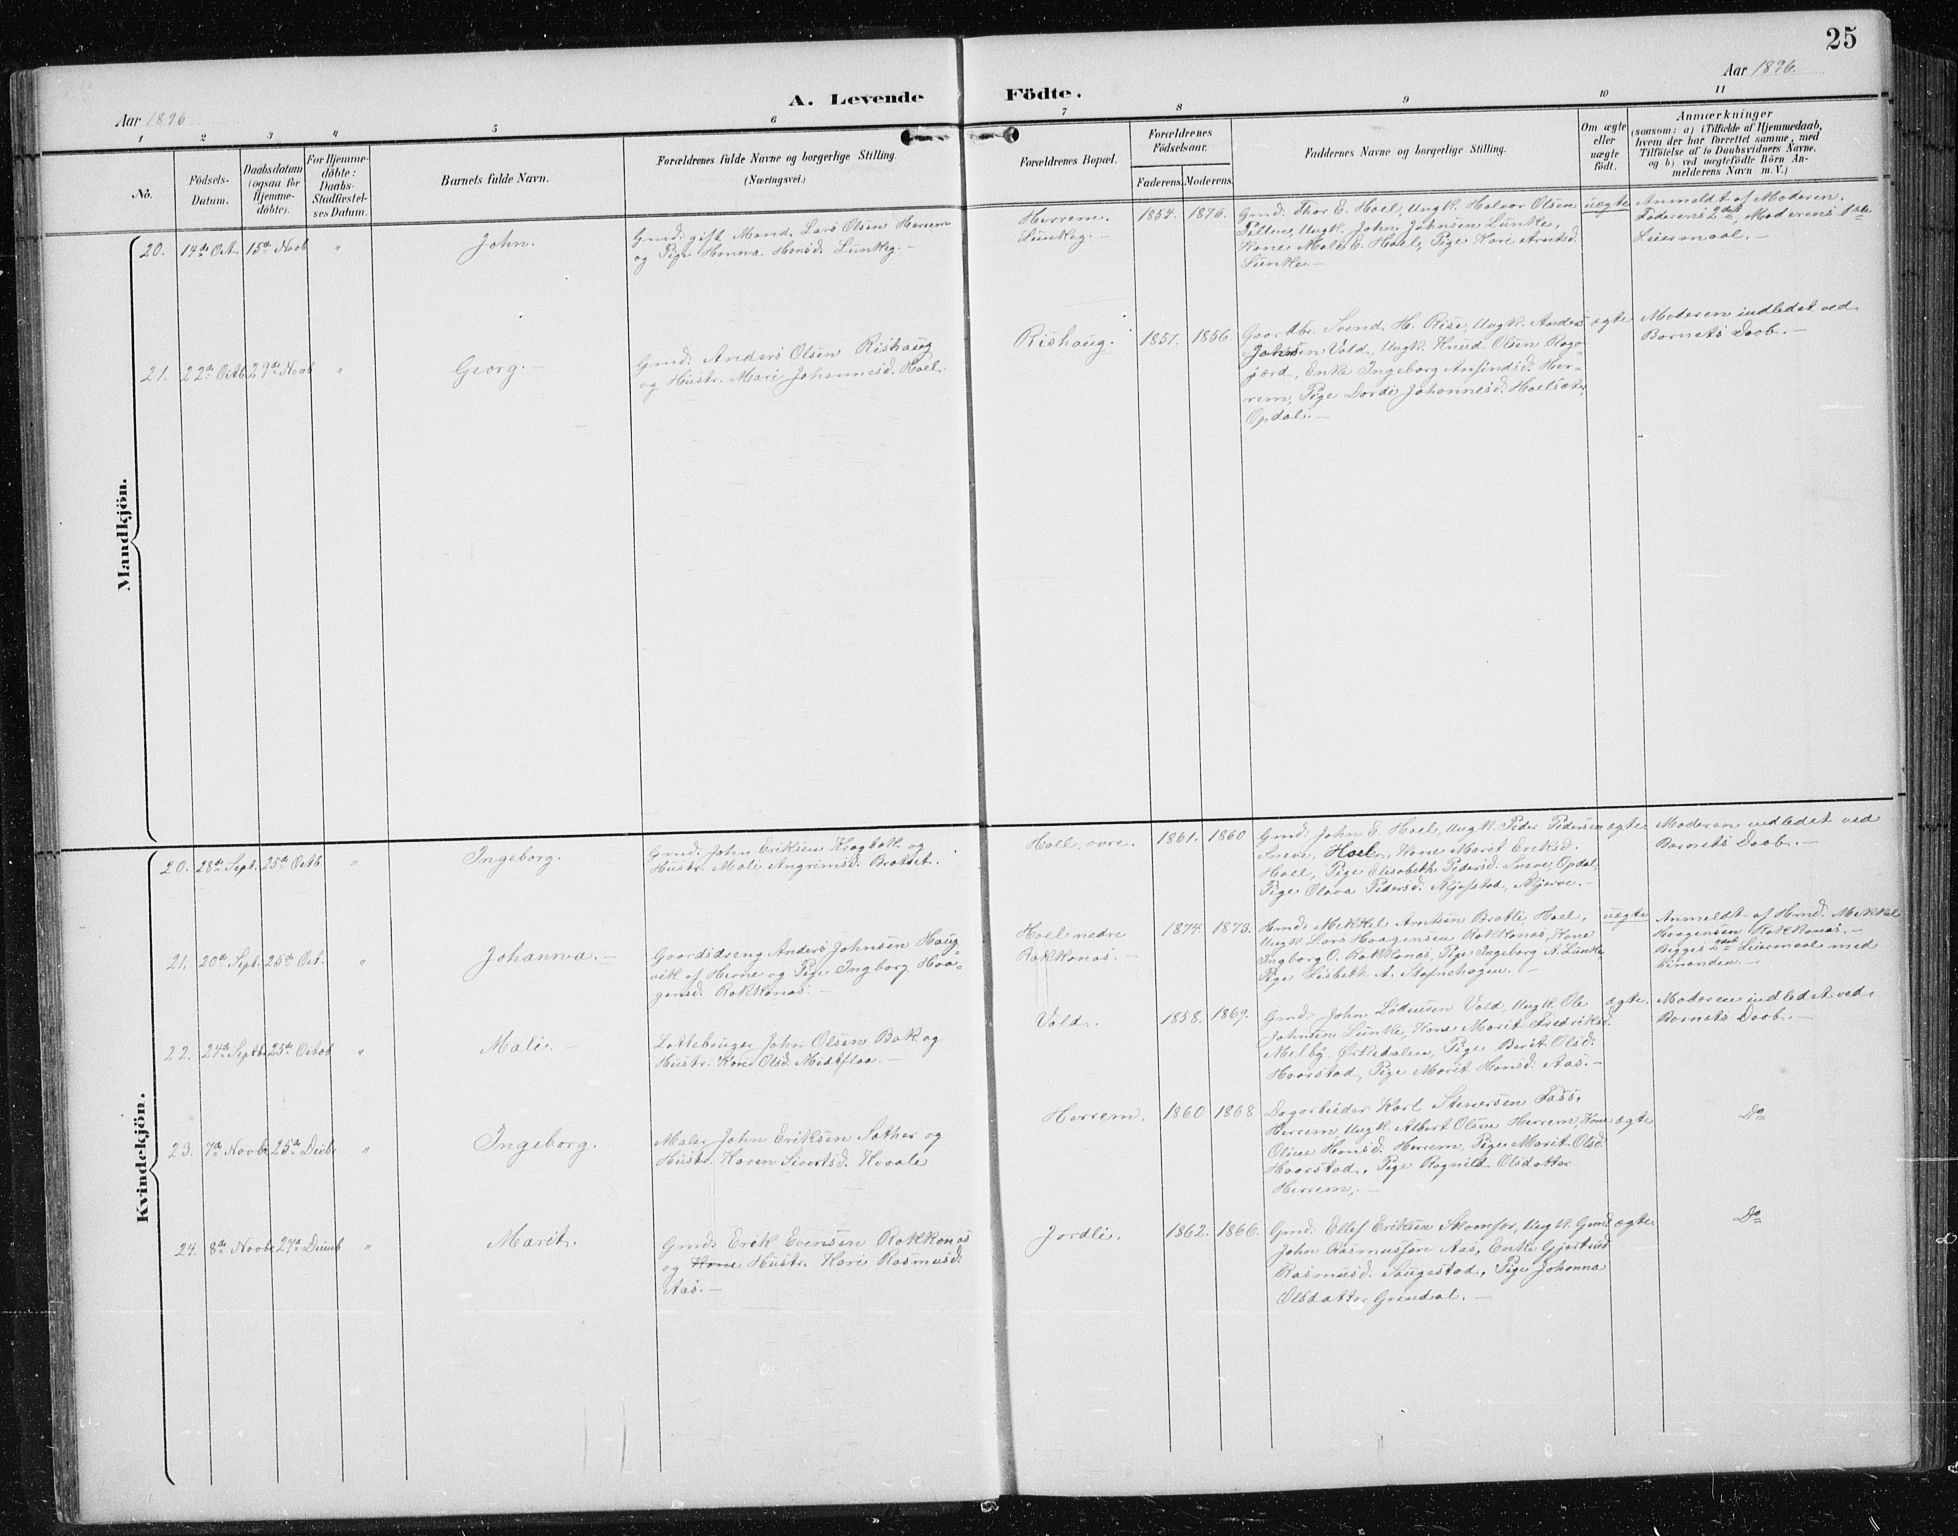 25
Aar 1896.
Aar 1896
A. Levende Födte.
1 2 3 4 5 6 7 8 9 10 11
No.
Födsels-
Datum.
Daabsdatum
(ogsaa for
Hjemme-
döbte).
For Hjemme-
döbte:
Daabs-
Stadfæstel-
ses Datum.
Barnets fulde Navn.
Forældrenes fulde Navne og borgerlige Stilling.
(Næringsvei.)
Forældrenes Bopæl.
Forældrenes
Födselsaar.
Faderens. Moderens.
Faddernes Navne og borgerlige Stilling.
Om ægte
eller
uægte
födt.
Anmærkninger
(saasom: a) i Tilfælde af Hjemmedaab,
hvem der har forrettet samme, med
Tilföielse af to Daabsvidners Navne,
og b) ved uægtefödte Börn An-
melderens Navn m. V.)
Mandkjön.
20. 14de Oct. 15de Novb " John.
Gmd. gift Mand Lars Olsen Herrem
og Pige Hanna Hansd. Lunkeg. —
Herrem.
Lunkeg. —
1854. 1876.
Gmd. Thor E. Hoel, Ungk. Halvor Olsen
Ungk. John Johnsen Lunke,
Kone Mali E. Hoel, Pige Kari Arntsd.
Lunke. —
uægte
Anmeldt af Moderen.
Faderens 2det, Moderens 1ste
Leiermaal. —
21. 22de Octb 29de Novb " Georg. —
Gmd. Anders Olsen Rishaug
og Hustr. Mari Johannesd. Hoel.
Rishaug. 1851. 1856.
Gaardbr. Svend H. Rise, Ungk. Anders
Johnsen Vold, Ungk. Knud Olsen Rogo-
jord, Enke Ingeborg Anfindsd. Her-
rem, Pige Dordi Johannesd. Hoelsæter,
Opdal. —
ægte
Moderen indledet ved
Barnets Daab. —
Kvindekjön.
20. 28de Sept. 25de Octb " Ingeborg.
Gmd. John Eriksen Krogbak og
Hustr. Mali Angrimsd. Brattset.
Hoel, øvre. 1861. 1860
Gmd. John E. Hoel, Ungk. Peder Pedersen
Sneve, Hoel, Kone Marit Eriksd.
Hoel, Pige Elisabeth Pedersd. Sneve, Opdal,
Pige Olava Pedersd.
ægte
Moderen indledet ved
Barnets Daab. —
21. 20de Sept. 25de Oct. " Johanna. —
Gaardsdreng Anders Johnsen Haug
af Hevne og Pige Ingborg Haa-
gensd. Rokkones. —
Hoel nedre
Rokkones. —
1874. 1873.
Hmd. Mekkel Arntsen Bratli Hoel,
Ungk Lars Haagensen Rokkones, Kone
Ingborg O. Rokkones, Pige Ingeborg A. Lunke,
Pige Lisbeth A. Stefnehagen. —
uægte
Anmeldt af Hmd. Mekkel
Haagensen Rokkones. —
Begges 2det Leiermaal med
hinanden. —
22. 24de Septb 25de Octob " Mali. —
Lottebruger John Olsen Bak og
Hustr. Kari Olsd. Midtflaa. —
Vold. 1858. 1869.
Gmd. John Lødensen Vold, Ungk. Ole
Johnsen Lunke, Kone Marit Fredriksd.
Melby, Ørkedalen, Pige Berit Olsd.
Haarstad, Pige Marit Hansd. Aas. —
ægte.
Moderen indledet ved
Barnets Daab. —
23. 7de Novbr 25de Decbr " Ingeborg.
Maler John Eriksen Sæther og
Hustr. Karen Sivertsd. Kvaale
Herrem. 1860 1868
Dagarbeider Karl Stenersen Fass,
Herrem, Ungk. Albert Olsen Herrem, Kone
Oline Hansd. Herrem, Pige Marit Olsd.
Haarstad, Pige Ragnild Olsdatter
Herrem. —
ægte
Do
24. 8de Novbr 27de Decmb " Marit.
Gmd. Erik Evensen Rokkones
og Kone Hustr. Kari Rasmusd.
Aas. —
Jordli. 1862. 1866.
Gmd. Ellef Eriksen Skamfer, Ungk. Gmd
John Rasmussen Aas, Enke Gjertrud
Rasmusd. Saugestad, Pige Johanna
Olsdatter Grindal. —
ægte
Do